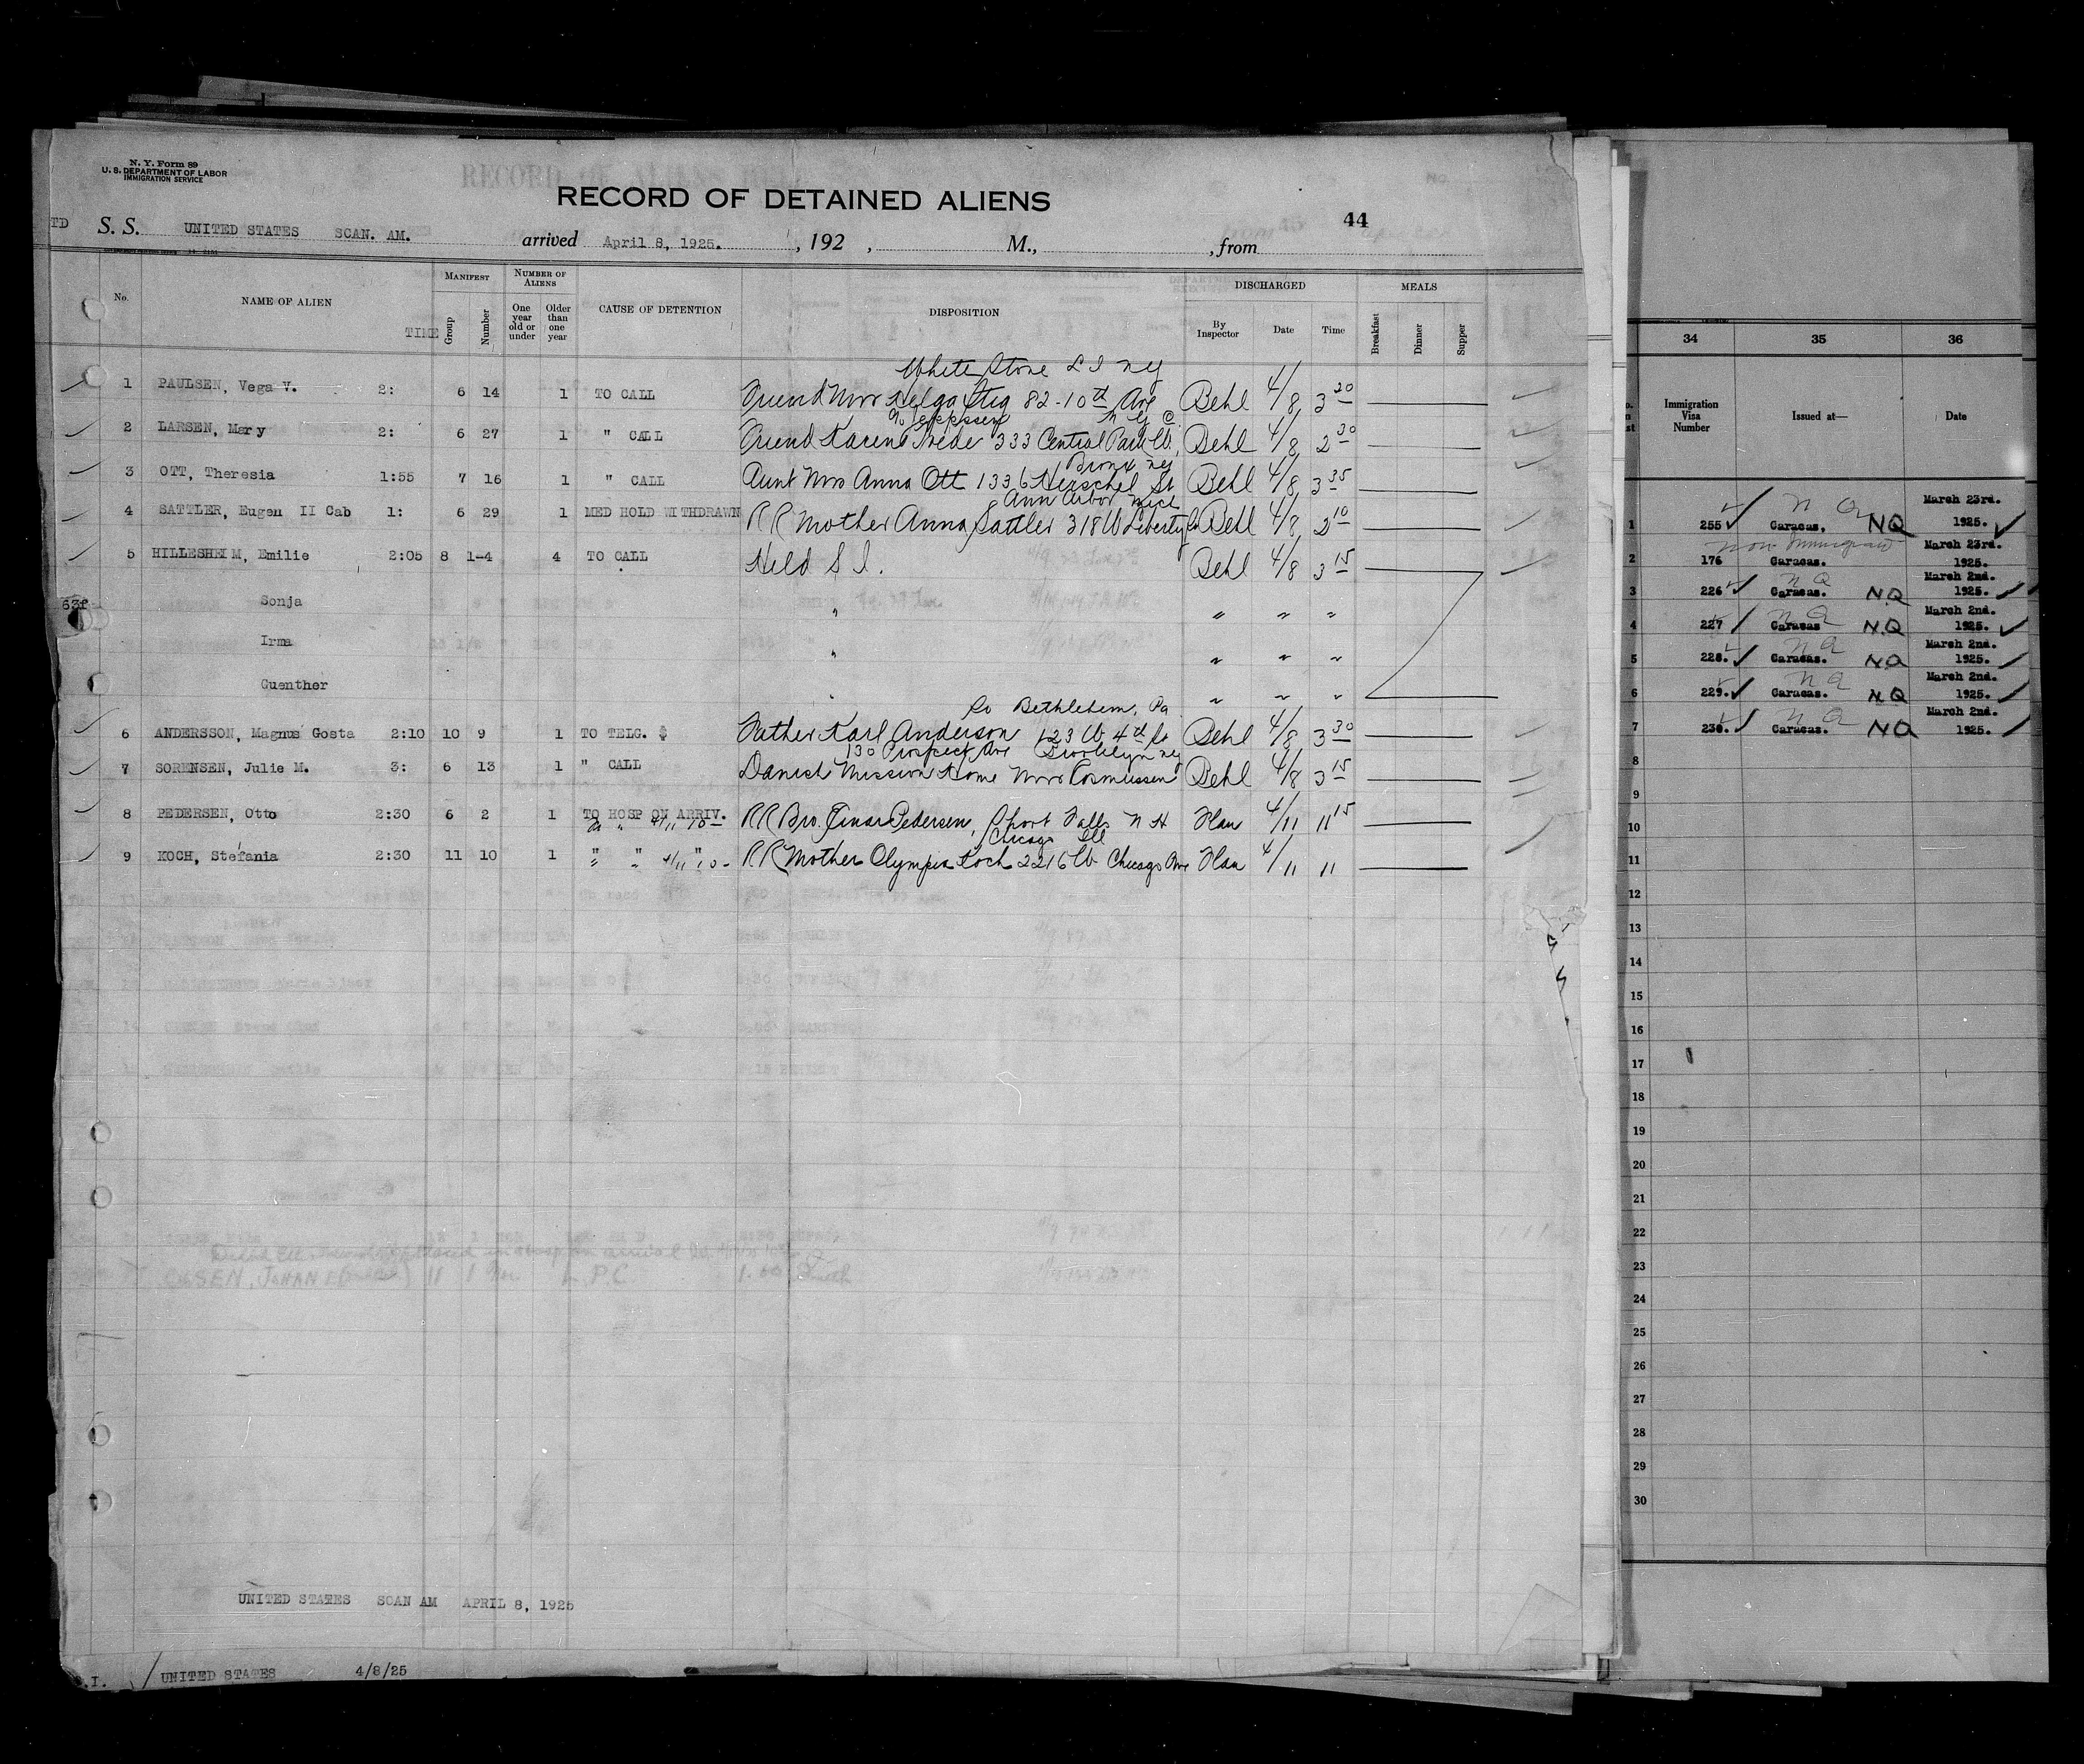 N. Y. Form 89
U. S. DEPARTMENT OF LABOR
IMMIGRATION SERVICE
RECORD OF DETAINED ALIENS
44
TD S. S. UNITED STATES SCAN. AM. arrived April 8, 1925. , 192 , M., , from
No. NAME OF ALIEN TIME MANIFEST Group Number NUMBER OF ALIENS One year old or under Older than one year CAUSE OF DETENTION DISPOSITION DISCHARGED By Inspector Date Time MEALS Breakfast Dinner Supper
White Stone L I NY
1 PAULSEN, Vega V. 2: 6 14 1 TO CALL Friend Mrs Helga 82-10th Ave Behl 4/8 3 20
c/o Jeppesen N Y C
2 LARSEN, Mary 2: 6 27 1 " CALL Friend Karen 333 Central Park W. Behl 4/8 2 30
Bronx NY
3 OTT, Theresia 1:55 7 16 1 " CALL Aunt Mrs Anna Ott 1336 Herschel St Behl 4/8 3 35
Ann Arbor Mich
4 SATTLER, Eugen II Cab 1: 6 29 1 MED HOLD WITHDRAWN RR Mother Anna Sattler 318 W Liberty St Behl 4/8 2 10
5 HILLESHEIM, Emilie 2:05 8 1-4 4 TO CALL Held S I. Behl 4/8 3 15
63f Sonja " " " "
Irma " " " "
Guenther " " " "
So Bethlehem, Pa
6 ANDERSSON, Magnus Gosta 2:10 10 9 1 TO TELG. $ Father Karl Anderson 123 W 4th St Behl 4/8 3 30
130 Prospect Ave Brooklyn NY
7 SORENSEN, Julie M. 3: 6 13 1 " CALL Danish Mission Home Mrs Rasmussen Behl 4/8 3 15
8 PEDERSEN, Otto 2:30 6 2 1 TO HOSP ON ARRIV. RR Bro. Einar Pedersen, Short Falls N H 4/11 11 15
" 4/11 10 -
Chicago Ill
9 KOCH, Stefania 2:30 11 10 1 " " " RR Mother Olympia Koch 2216 W Chicago Ave 4/11 11
" " 4/11 10 -
OLSEN, JOHAN
UNITED STATES SCAN AM APRIL 8, 1925
.I. / UNITED STATES 4/8/25
34 35 36
Immigration Visa Number Issued at— Date
1 255 Caracas, NQ March 23rd. 1925.
2 176 Non Immigrant Caracas. March 23rd. 1925.
3 226 NQ Caracas. N.Q March 2nd. 1925.
4 227 NQ Caracas N.Q March 2nd. 1925.
5 228. NQ Caracas. NQ March 2nd. 1925.
6 229. NQ Caracas. N.Q March 2nd. 1925.
7 230. NQ Caracas. NQ March 2nd. 1925.
8
9
10
11
12
13
14
15
16
17
18
19
20
21
22
23
24
25
26
27
28
29
30